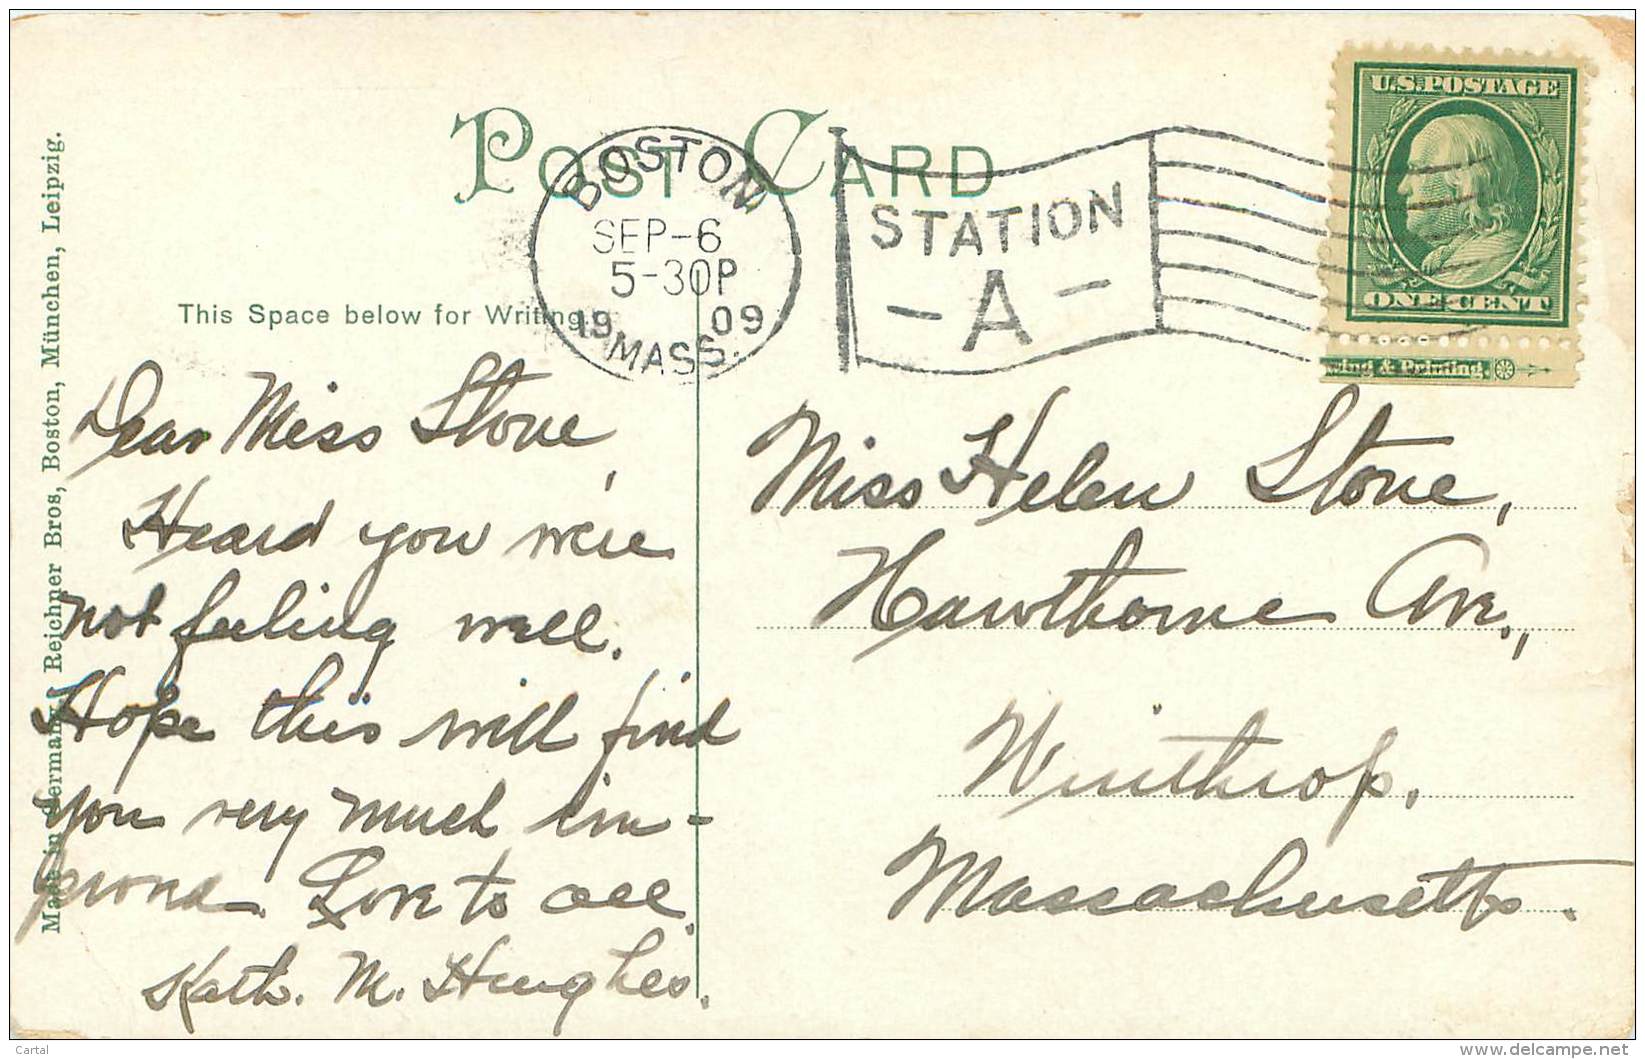 POST CARD
BOSTON
SEP-6
5-30P
1909
MASS.
STATION
- A -
U.S. POSTAGE
ONE CENT
ving & Printing.
This Space below for Writing.
Made in Germany, Reichner Bros, Boston, München, Leipzig.
Dear Miss Stone,
Heard you were
not feeling well.
Hope this will find
you very much im-
proved. Love to all.
Kath. M. Hughes.
Miss Helen Stone,
Hawthorne Ave.,
Winthrop,
Massachusetts.
Cartal
www.delcampe.net